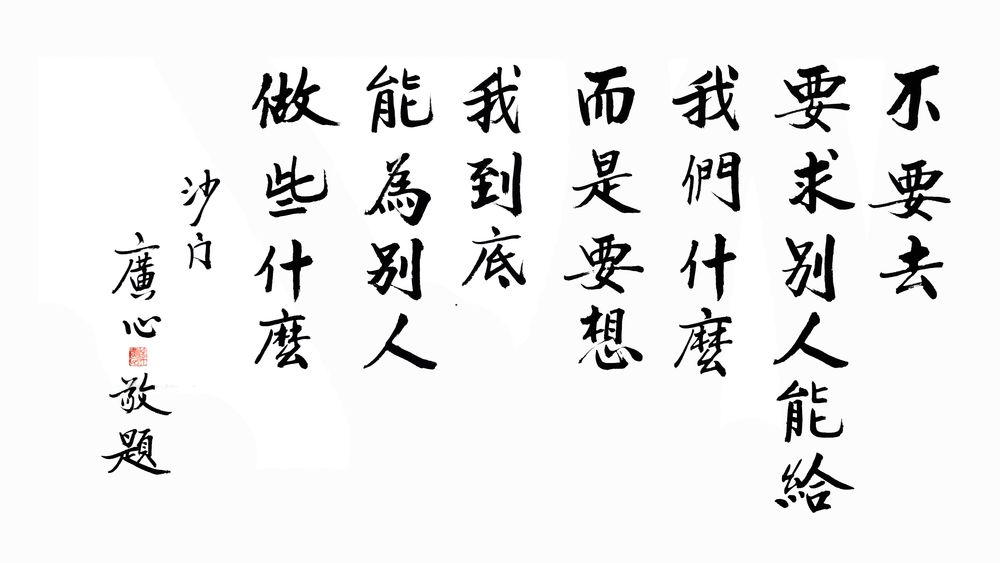 不要去
要求别人能給
我們什麽
而是要想
我到底
能為别人
做些什麽
沙门
廣心
敬題